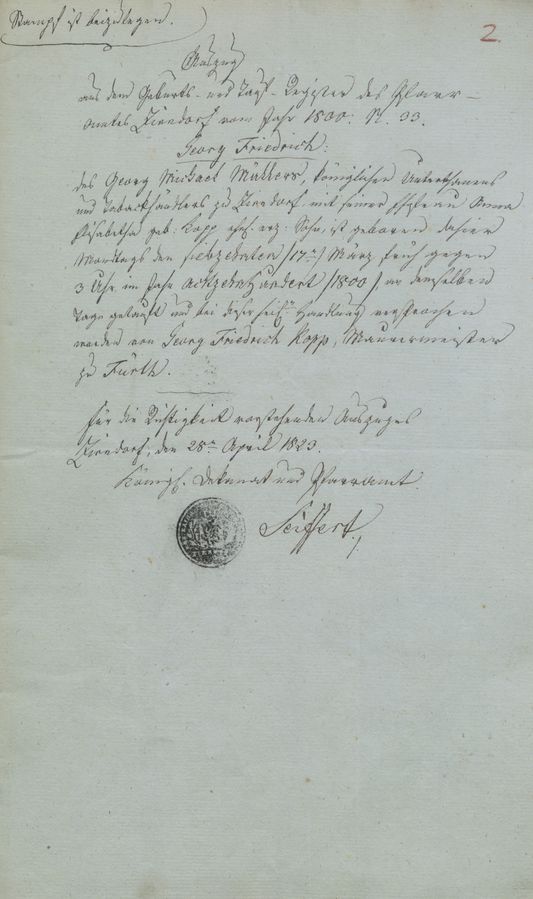 Stempel ist beizulegen.
2.
Auszug
aus dem Geburts- und Tauf-Register des Pfarr-
amtes Zirndorf vom Jahr 1800. N. 33.
Georg Friedrich:
des Georg Michael Müllers, königlichen Unterthanens
und Tabackhändlers zu Zirndorf mit seiner Ehefrau Anna
Elisabetha geb. Kopp ehel. erz. Sohn, ist geboren dahier
Montags den siebzehnten /17n/ März früh gegen
3 Uhr im Jahr achtzehnhundert /1800/ an demselben
Tage getauft und bei dieser heil. Handlung versprochen
worden von Georg Friedrich Kopp, Maurermeister
zu Fürth.
Für die Richtigkeit vorstehenden Auszuges
Zirndorf, den 28n April 1823.
Königl. Dekanat und Pfarramt.
Seiffert